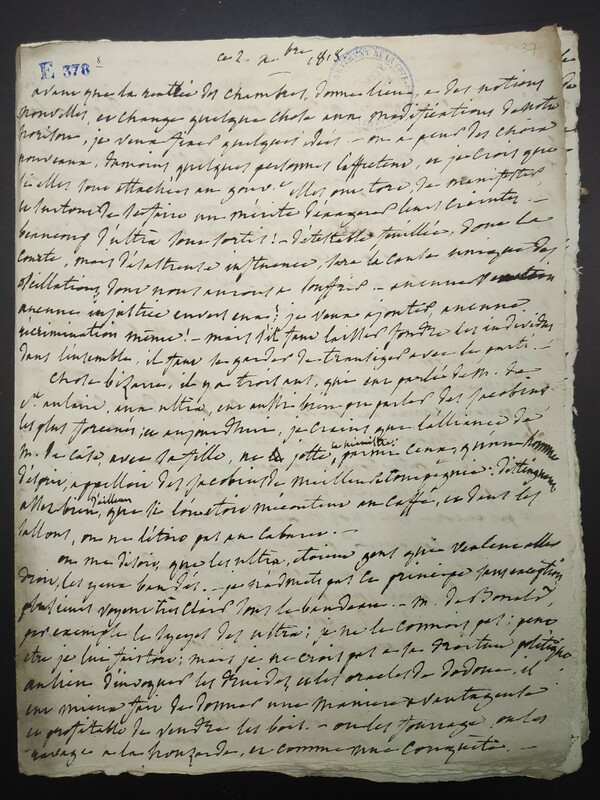 E 378
8
37
ce 2. Xbre 1818
avant que la rentrée des chambres, donne lieu, a des notions
nouvelles, et change quelque chose aux modifications de notre
horison, je veux fixer quelques idées - on a peur des choix
nouveaux. du moins quelques personnes l'affectent, et je crois que
si elles sont attachées au gouvt elles ont tort, de manifester,
et surtout de se faire un mérite d'exagerer leurs craintes -
beaucoup d'ultra sont sortis! - détestable feuillée, dont la
courte, mais désastreuse influence, sera la cause unique des
oscillations, dont nous aurons a souffrir - aucune
aucune injustice envers eux; je veux ajouter, aucune
récrimination même! - mais s'il faut laisser fondre les individus
dans l'ensemble, il faut se garder de transiger avec le parti. -
chose bizarre, il y a trois ans, que eut parlé de M. de
St aulaire, aux ultra, eut aussi bien pu parler des jacobins
les plus forcenés; et aujourd'hui, je crains que l'alliance de
M. de Caze, avec sa fille, ne jette, le ministre parmi ceux, qu'un homme
d'esprit, appelloit des jacobins de meilleure compagnie. distinguons
assez bien, d'ailleurs que si l'on étoit mécontent au caffé, et dans les
sallons, on ne l'étoit pas au cabaret. -
on me disoit, que les ultra, étaient gens qui veulent aller
droit, les yeux bandés. - je n'admets pas ce principe sans exception
plusieurs voyent très clair sous le bandeau. - M. de Bonald,
par exemple le syeyes des ultra; je ne le connois pas; peut
etre je lui fais tort; mais je ne crois pas a sa droiture politique
au lieu d'invoquer les druides, et les oracles de dodone, il
eut mieux fait de donner une manière avantageuse
et profitable de vendre les bois. - on les fourrage, on les
ravage a la houzarde, et comme une conquête. -